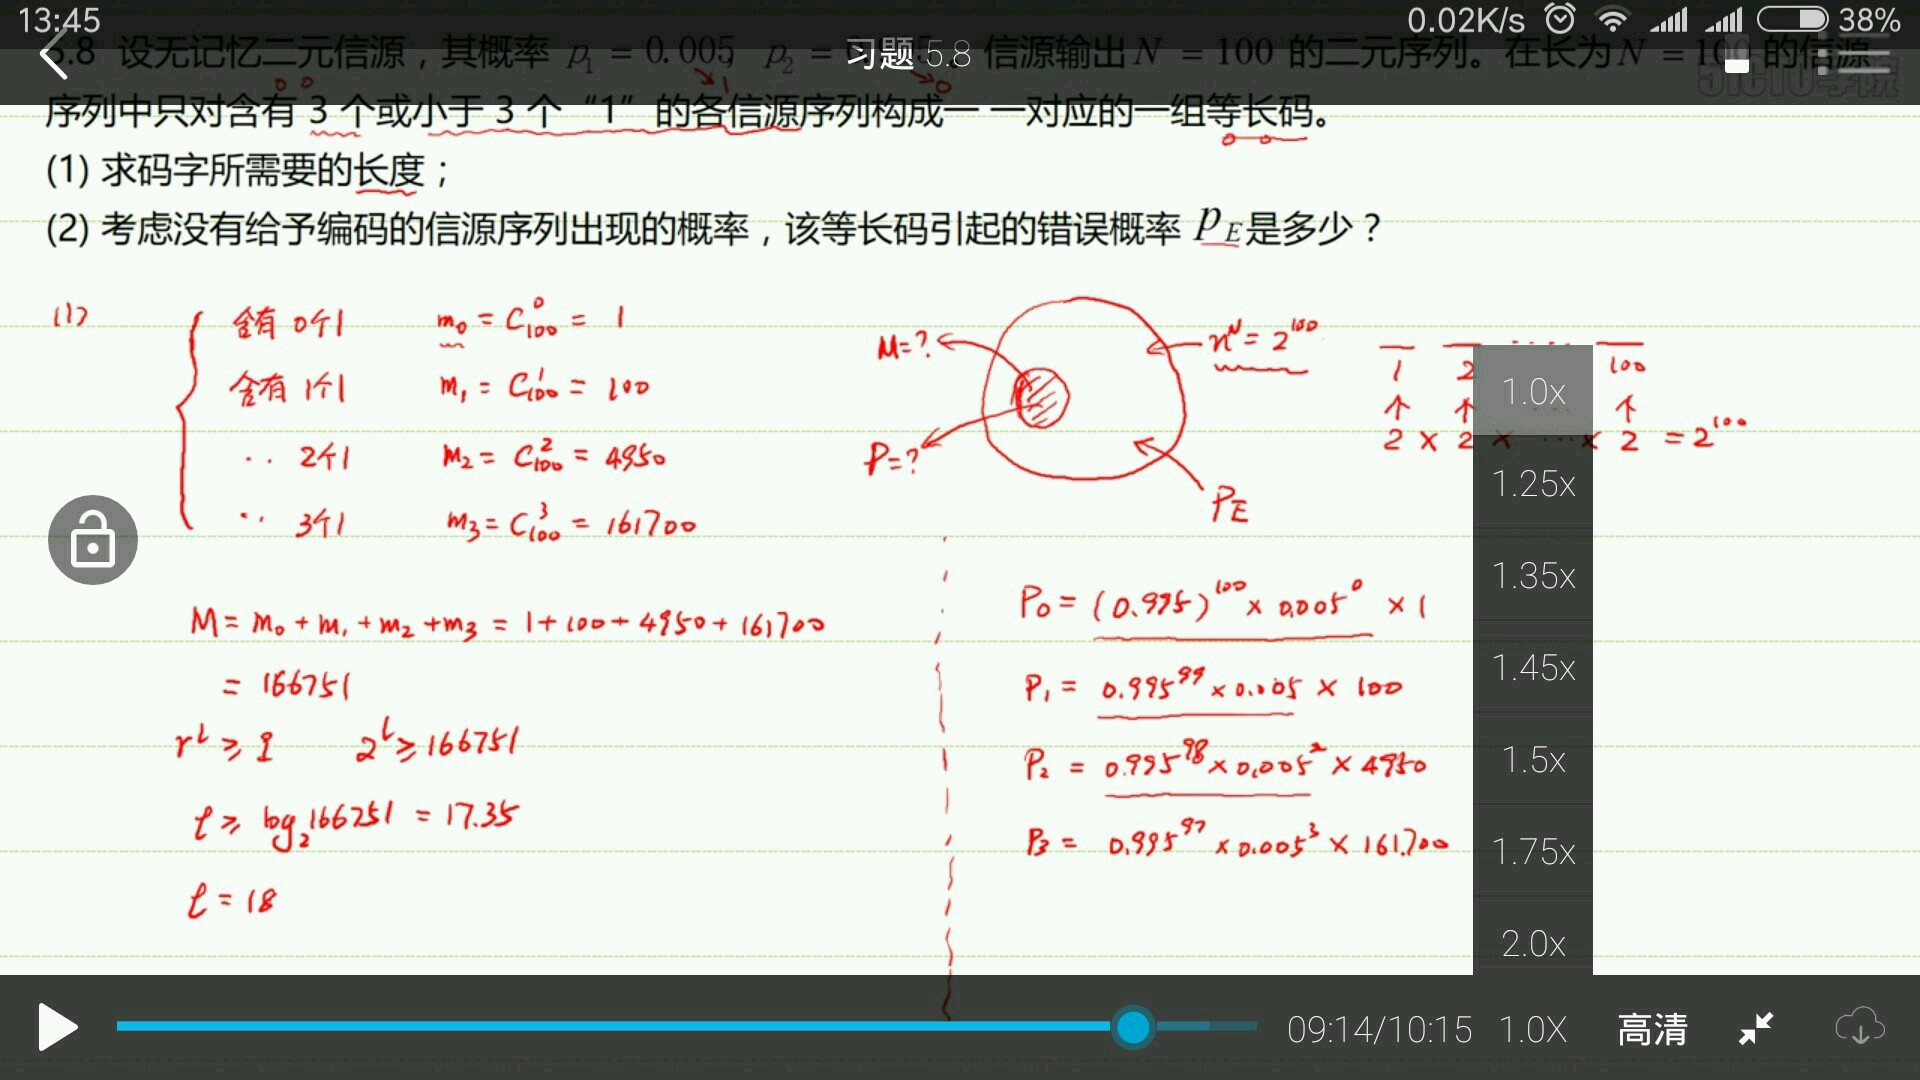 13:45 0.02K/s 38%
习题 5.8
5.8 设无记忆二元信源，其概率 p₁ = 0.005, p₂ = 信源输出 N = 100 的二元序列。在长为 N = 100 的信源
序列中只对含有 3 个或小于 3 个 “1” 的各信源序列构成一 一对应的一组等长码。
(1) 求码字所需要的长度；
(2) 考虑没有给予编码的信源序列出现的概率，该等长码引起的错误概率 p_E 是多少？
→1
→0
(1)
含有 0个1 m₀ = C₁₀₀⁰ = 1
含有 1个1 m₁ = C₁₀₀¹ = 100
·· 2个1 m₂ = C₁₀₀² = 4950
·· 3个1 m₃ = C₁₀₀³ = 161700
M = m₀ + m₁ + m₂ + m₃ = 1 + 100 + 4950 + 161700
= 166751
2^l ≥ 166751
l ≥ log₂166751 = 17.35
l = 18
M=?
P=?
n^N = 2¹⁰⁰
P_E
1 2 100
2 × 2 × ··· × 2 = 2¹⁰⁰
P₀ = (0.995)¹⁰⁰ × 0.005⁰ × 1
P₁ = 0.995⁹⁹ × 0.005 × 100
P₂ = 0.995⁹⁸ × 0.005² × 4950
P₃ = 0.995⁹⁷ × 0.005³ × 161700
1.0x
1.25x
1.35x
1.45x
1.5x
1.75x
2.0x
09:14/10:15 1.0X 高清